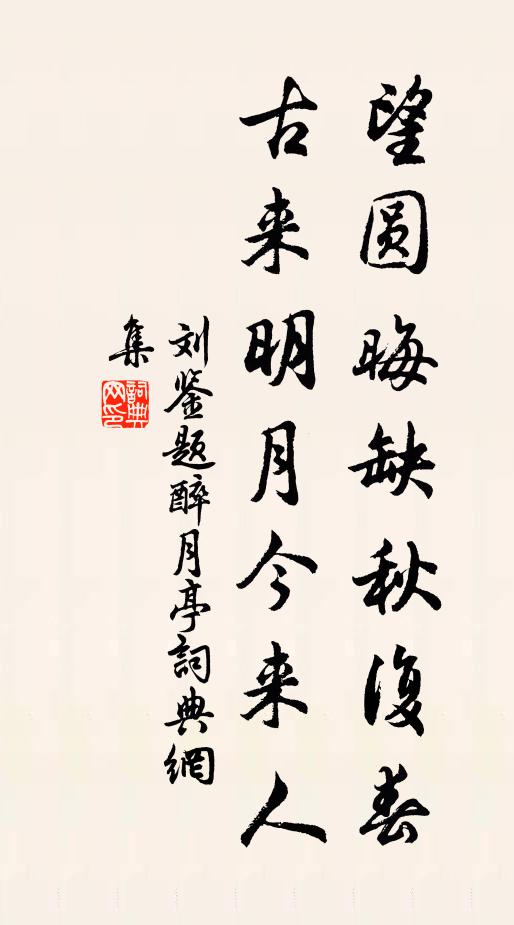 望圆晦缺秋復春
古来明月今来人
刘鉴题醉月亭詞典網
集
詞典网印